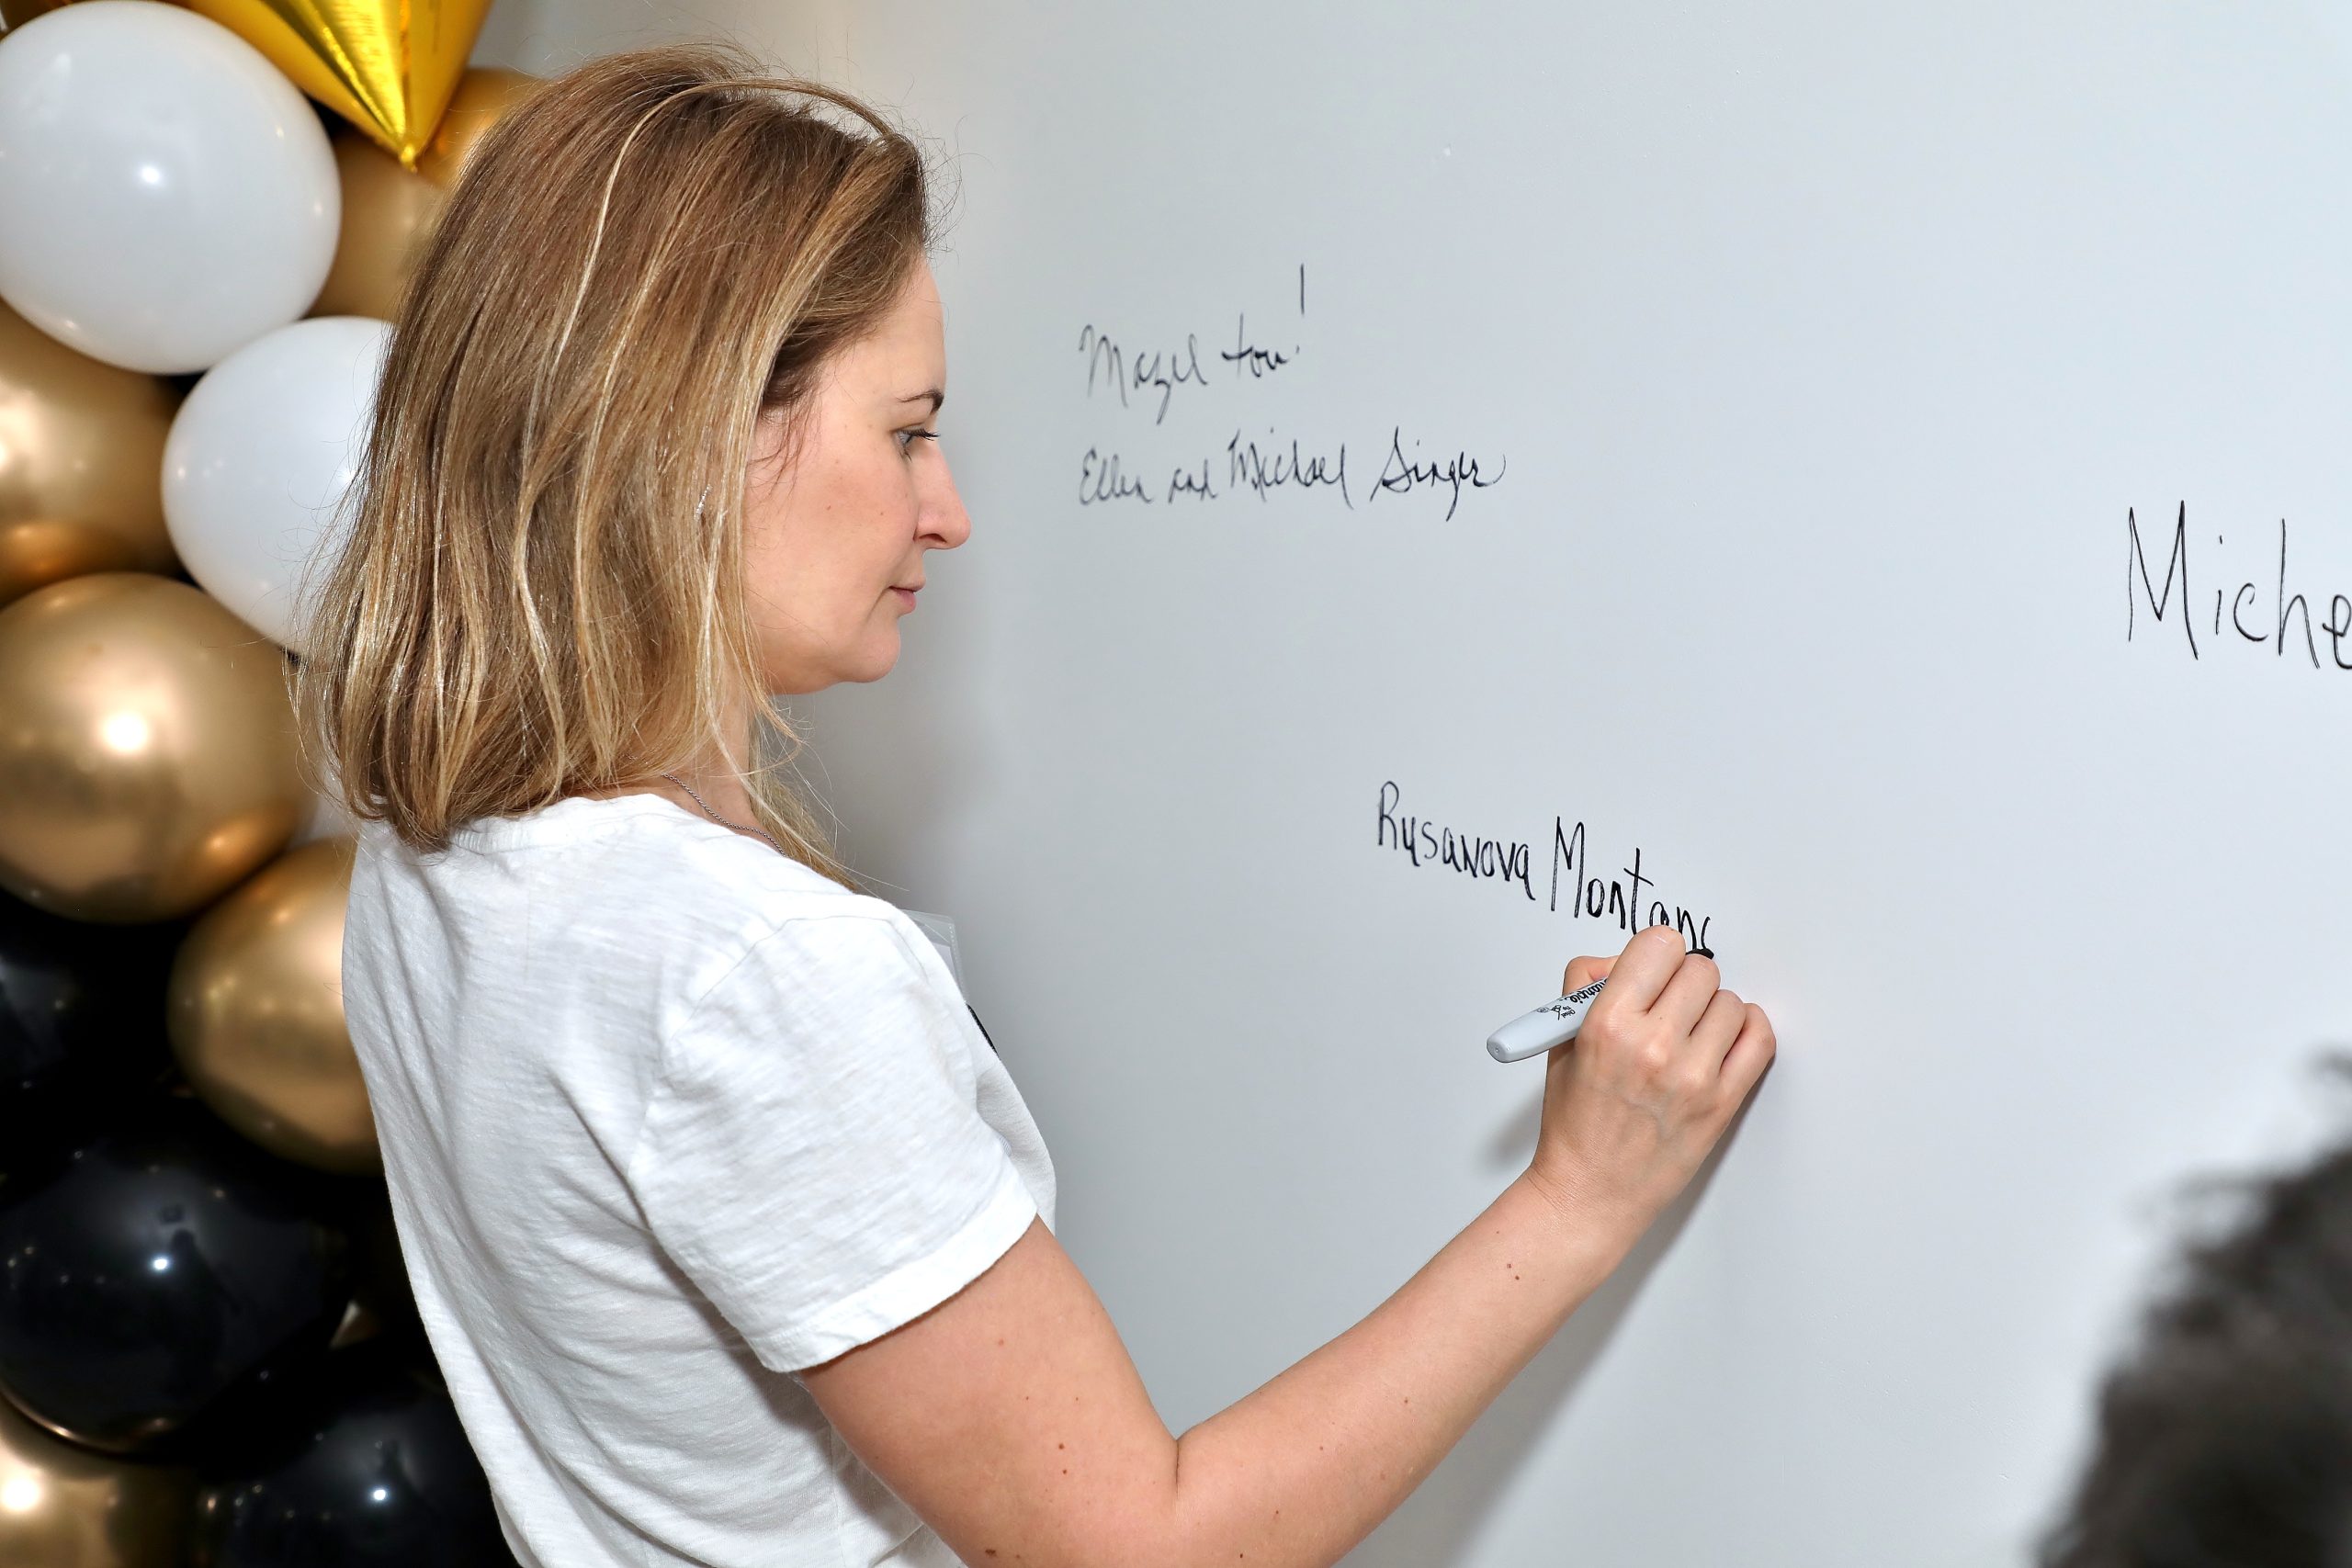 Mazel tov!
Ellen and Michael Singer
Miche
Rusanova Montano
Sharpie